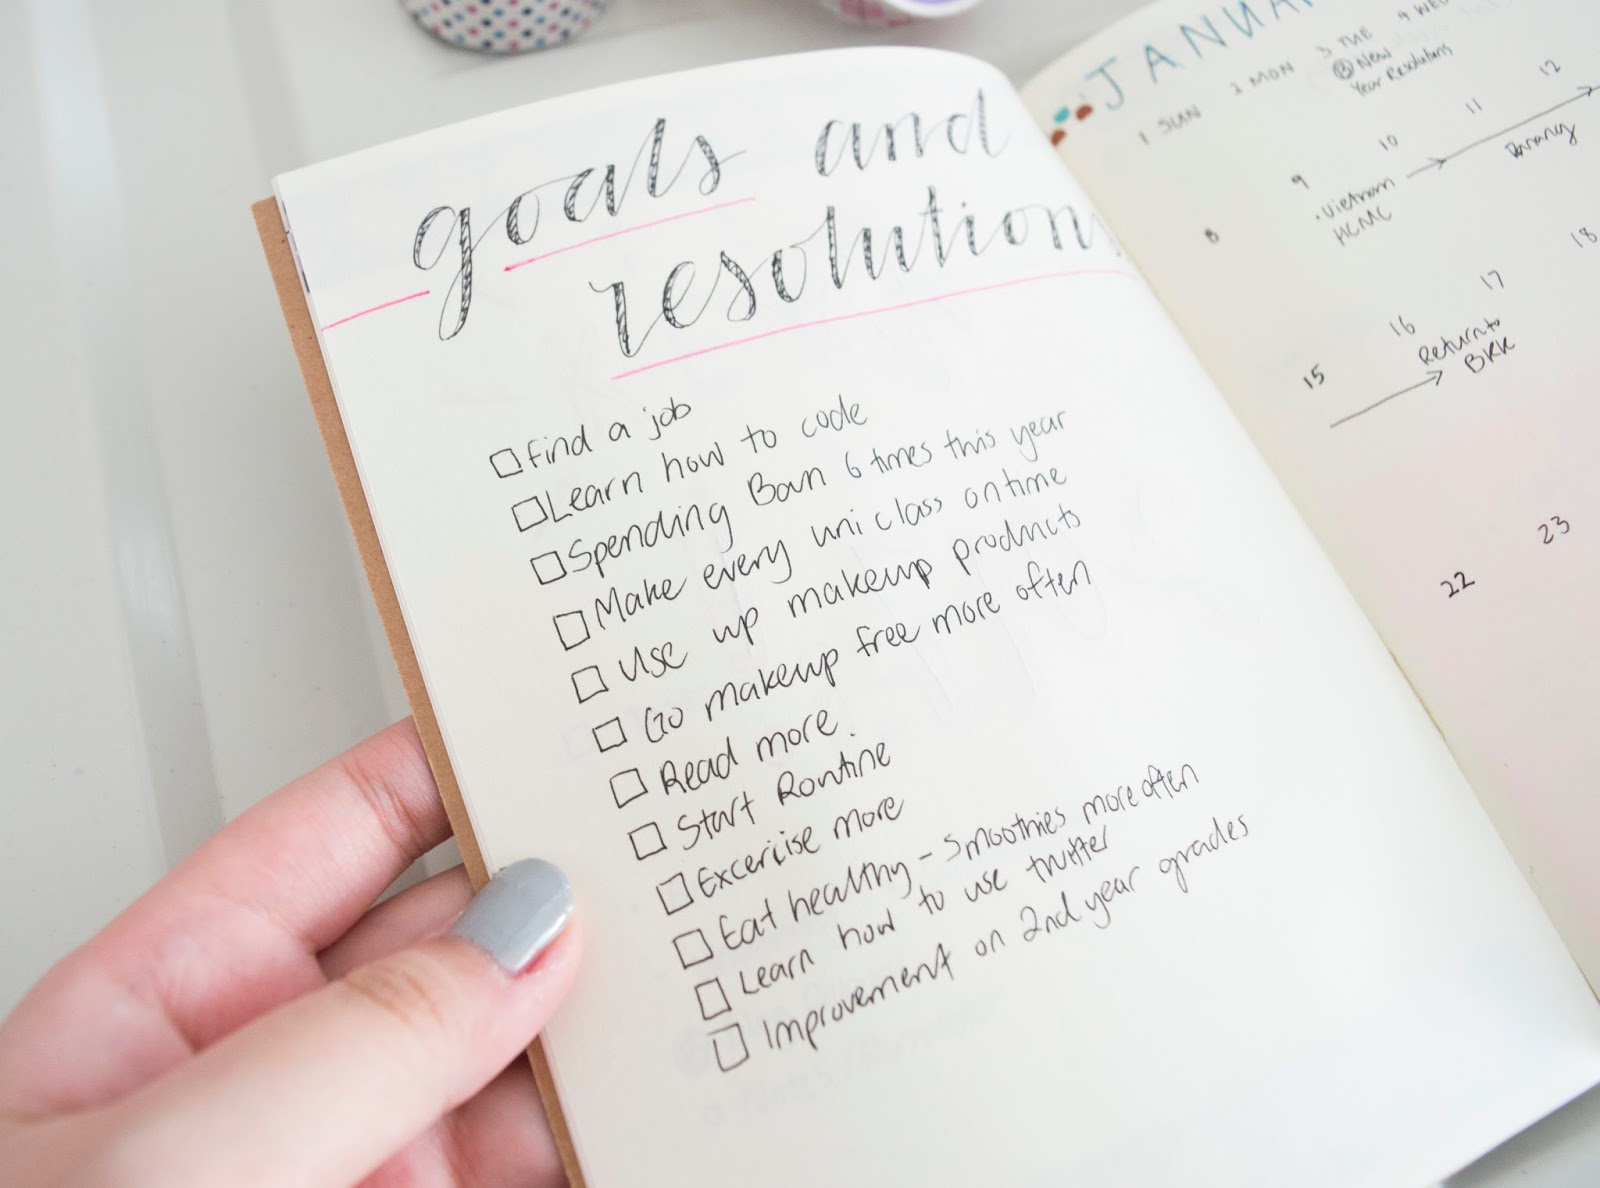 goals and
resolutions
Find a job
Learn how to code
Spending Ban 6 times this year
Make every uni class on time
Use up makeup products
Go makeup free more often
Read more.
Start Routine
Excercise more
Eat healthy - Smoothies more often
Learn how to use twitter
Improvement on 2nd year grades
JANUAR
1 SUN 2 MON 3 TUE 4 WED
New
Year Resolutions
8 9 10 11 12
Vietnam
HCMC
Danang
15 16 17 18
Return to
BKK
22 23